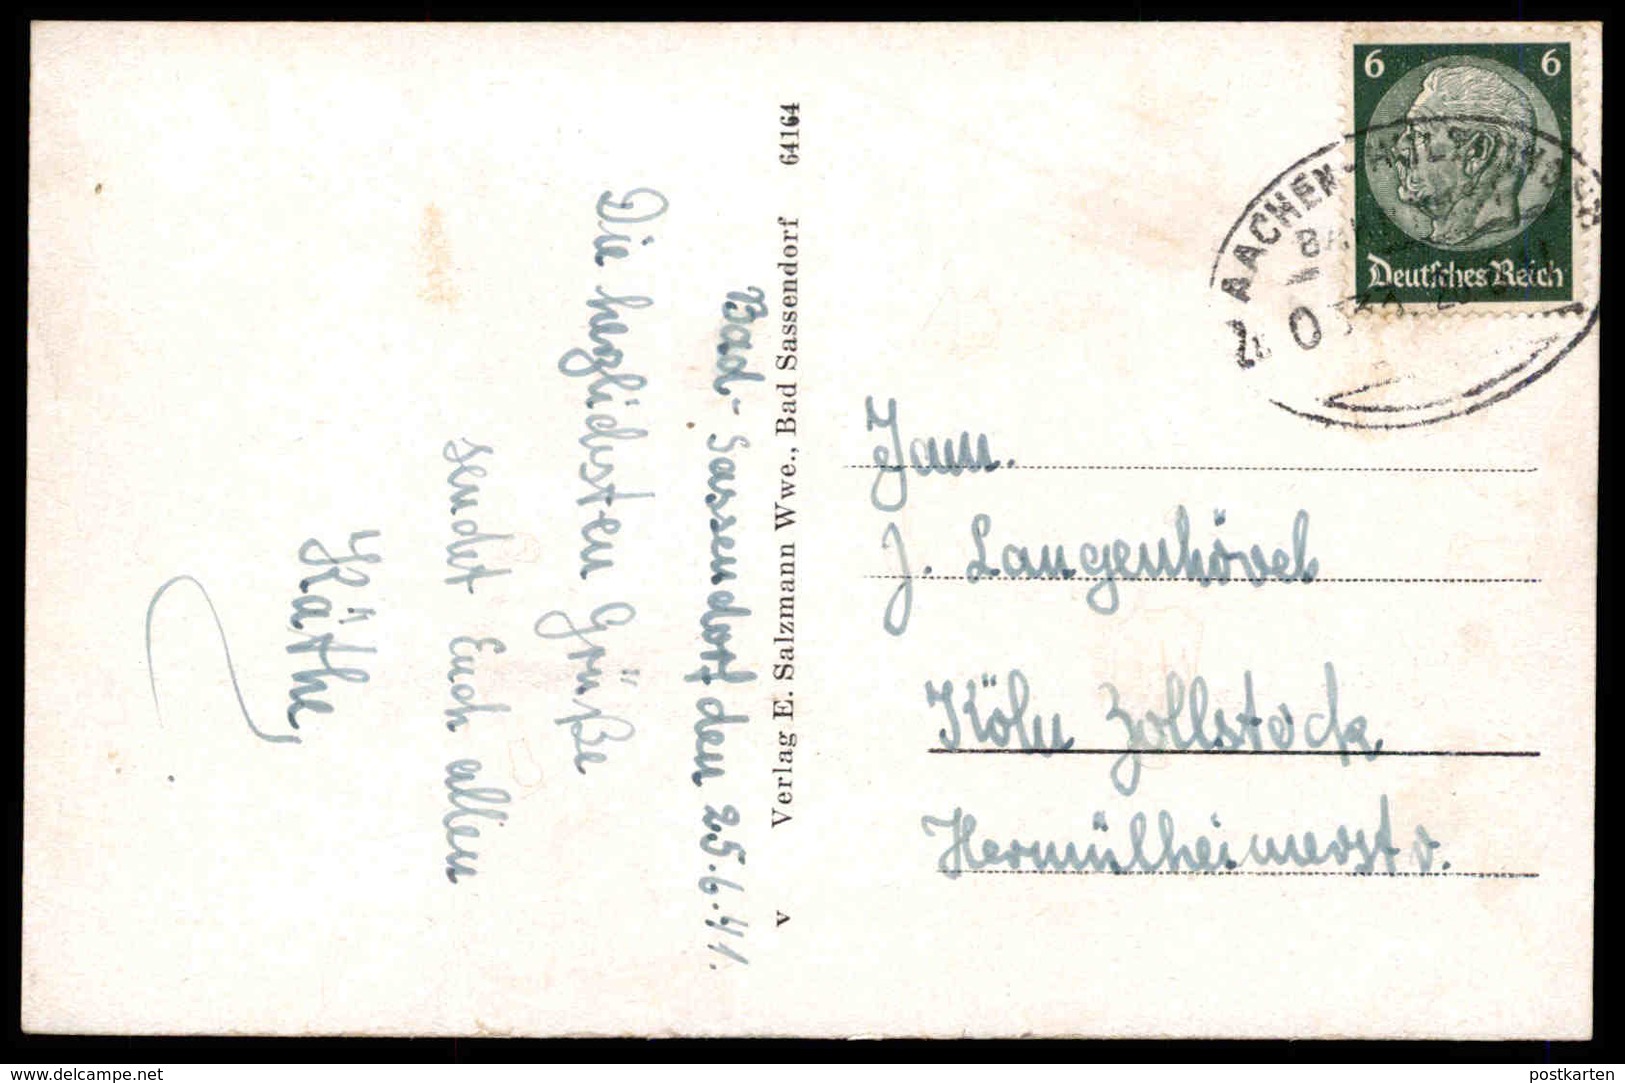 Bad-Sassendorf den 25.6.41.
Die herzlichsten Grüße
sendet Euch allen
Käthe
v Verlag E. Salzmann Wwe., Bad Sassendorf 64164
6 6
Deutsches Reich
AACHEN-HOLZMINDEN
Fam.
J. Langenhövel
Köln Zollstock
Hermülheimerstr.
www.delcampe.net
postkarten